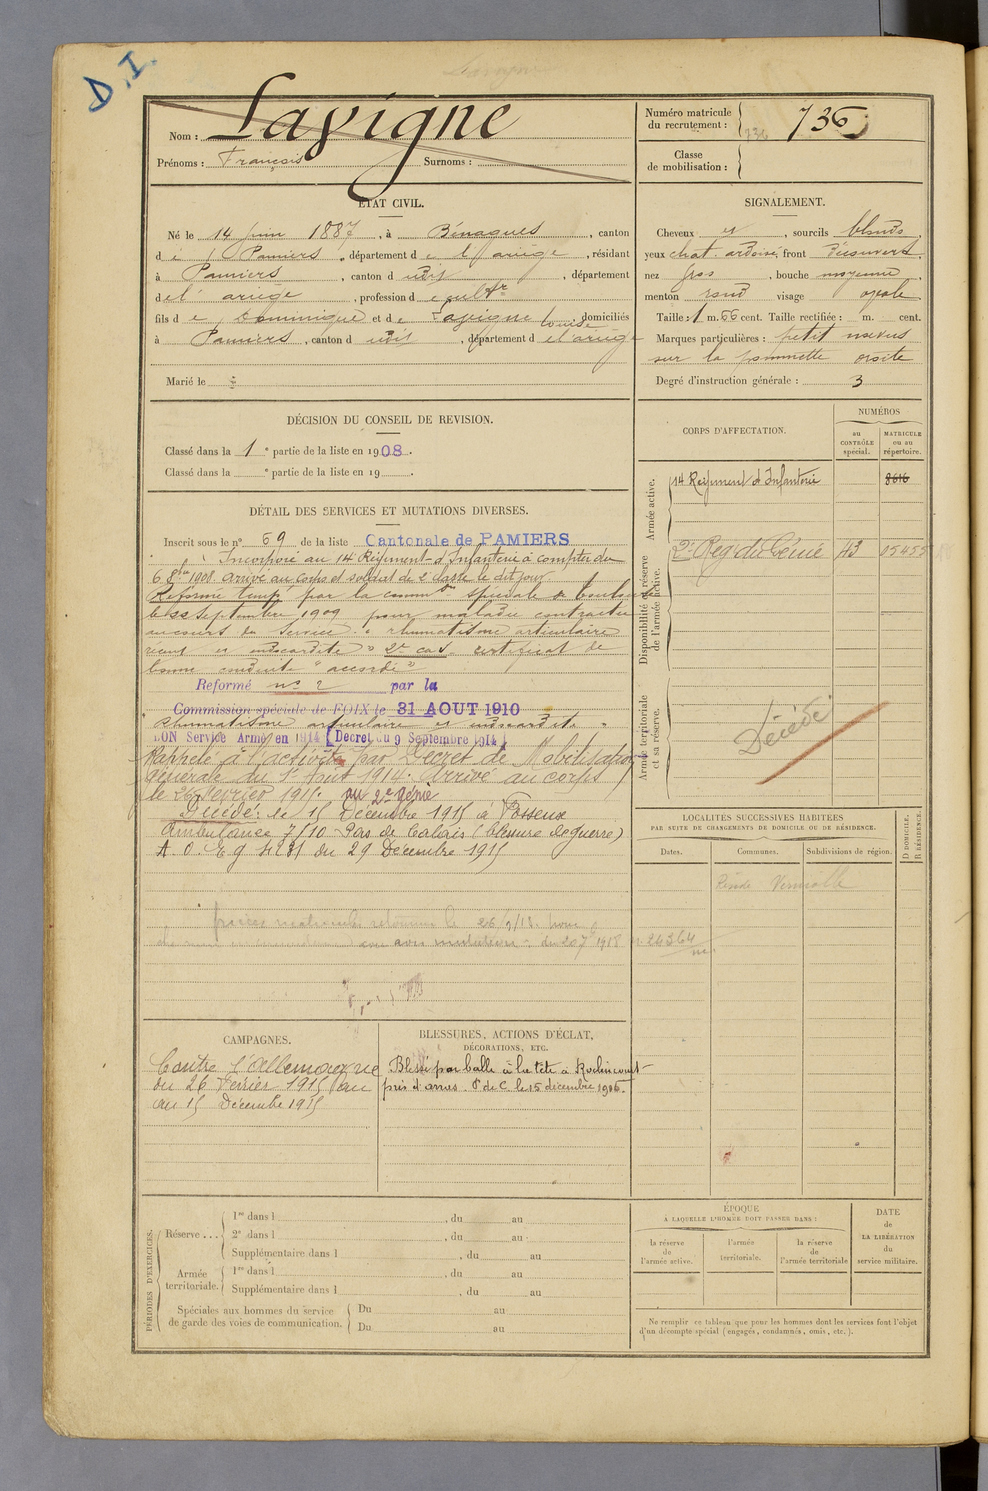 D. I.
Nom : Lavigne
Prénoms : François Surnoms :
Numéro matricule du recrutement : 736
736
Classe de mobilisation :
ÉTAT CIVIL.
Né le 14 juin 1887, à Bénagues, canton
de Pamiers, département de l'ariège, résidant
à Pamiers, canton dudit, département
de l'ariège, profession de cultr
fils de Dominique et de Lavigne Louise domiciliés
à Pamiers, canton dudit, département de l'ariège
Marié le
SIGNALEMENT.
Cheveux et, sourcils blonds,
yeux chat. ardoisé, front découvert,
nez gros, bouche moyenne
menton rond visage ovale
Taille : 1 m. 66 cent. Taille rectifiée : m. cent.
Marques particulières : petit naevus
sur la pommette droite
Degré d'instruction générale : 3
DÉCISION DU CONSEIL DE REVISION.
Classé dans la 1e partie de la liste en 1908.
Classé dans la e partie de la liste en 19 .
CORPS D'AFFECTATION.
NUMÉROS
au CONTRÔLE spécial.
MATRICULE ou au répertoire.
Armée active.
14 Régiment d'Infanterie 8616
Disponibilité et réserve de l'armée active.
2e Reg du Génie 43 05455
Armée territoriale et sa réserve.
Décédé
DÉTAIL DES SERVICES ET MUTATIONS DIVERSES.
Inscrit sous le n° 69 de la liste Cantonale de PAMIERS
Incorporé au 14e Régiment d'Infanterie à compter du
6 8bre 1908. arrivé au corps et soldat de 2e classe le dit jour.
Réformé tempre par la common spéciale de Toulouse
le 22 septembre 1909 pour maladie contractée
au cours du service. "rhumatisme articulaire
récent et endocardite" 2e cas. certificat de
bonne conduite "accordé"
Reformé no 2 par la
Commission spéciale de FOIX le 31 AOUT 1910
Rhumatisme articulaire et endocardite "
BON Service Armé en 1914 [Decret du 9 Septembre 1914]
Rappelé à l'activité par Decret de Mobilisation
générale du 1er Août 1914. Arrivé au corps
le 26 Fevrier 1915. au 2e génie
Décédé: le 15 Décembre 1915 à Fosseux
Ambulance 7/10 Pas de Calais (blessure de guerre)
du 29 Décembre 1915
LOCALITÉS SUCCESSIVES HABITÉES
PAR SUITE DE CHANGEMENTS DE DOMICILE OU DE RÉSIDENCE.
Dates. Communes. Subdivisions de région.
D DOMICILE. R RÉSIDENCE.
CAMPAGNES.
Contre l'Allemagne
du 26 Fevrier 1915 au
au 15 Décembre 1915
BLESSURES, ACTIONS D'ÉCLAT,
DÉCORATIONS, ETC.
Blessé par balle à la tête à Roclincourt
près d'arras. P. de C. le 15 décembre 1915.
PÉRIODES D'EXERCICES.
Réserve . . .
1re dans l , du au
2e dans l , du au
Supplémentaire dans l , du au
Armée territoriale.
1re dans l , du au
Supplémentaire dans l , du au
Spéciales aux hommes du service de garde des voies de communication.
Du au
Du au
ÉPOQUE
À LAQUELLE L'HOMME DOIT PASSER DANS :
la réserve de l'armée active.
l'armée territoriale.
la réserve de l'armée territoriale
DATE de LA LIBÉRATION du service militaire.
Ne remplir ce tableau que pour les hommes dont les services font l'objet
d'un décompte spécial (engagés, condamnés, omis, etc.).